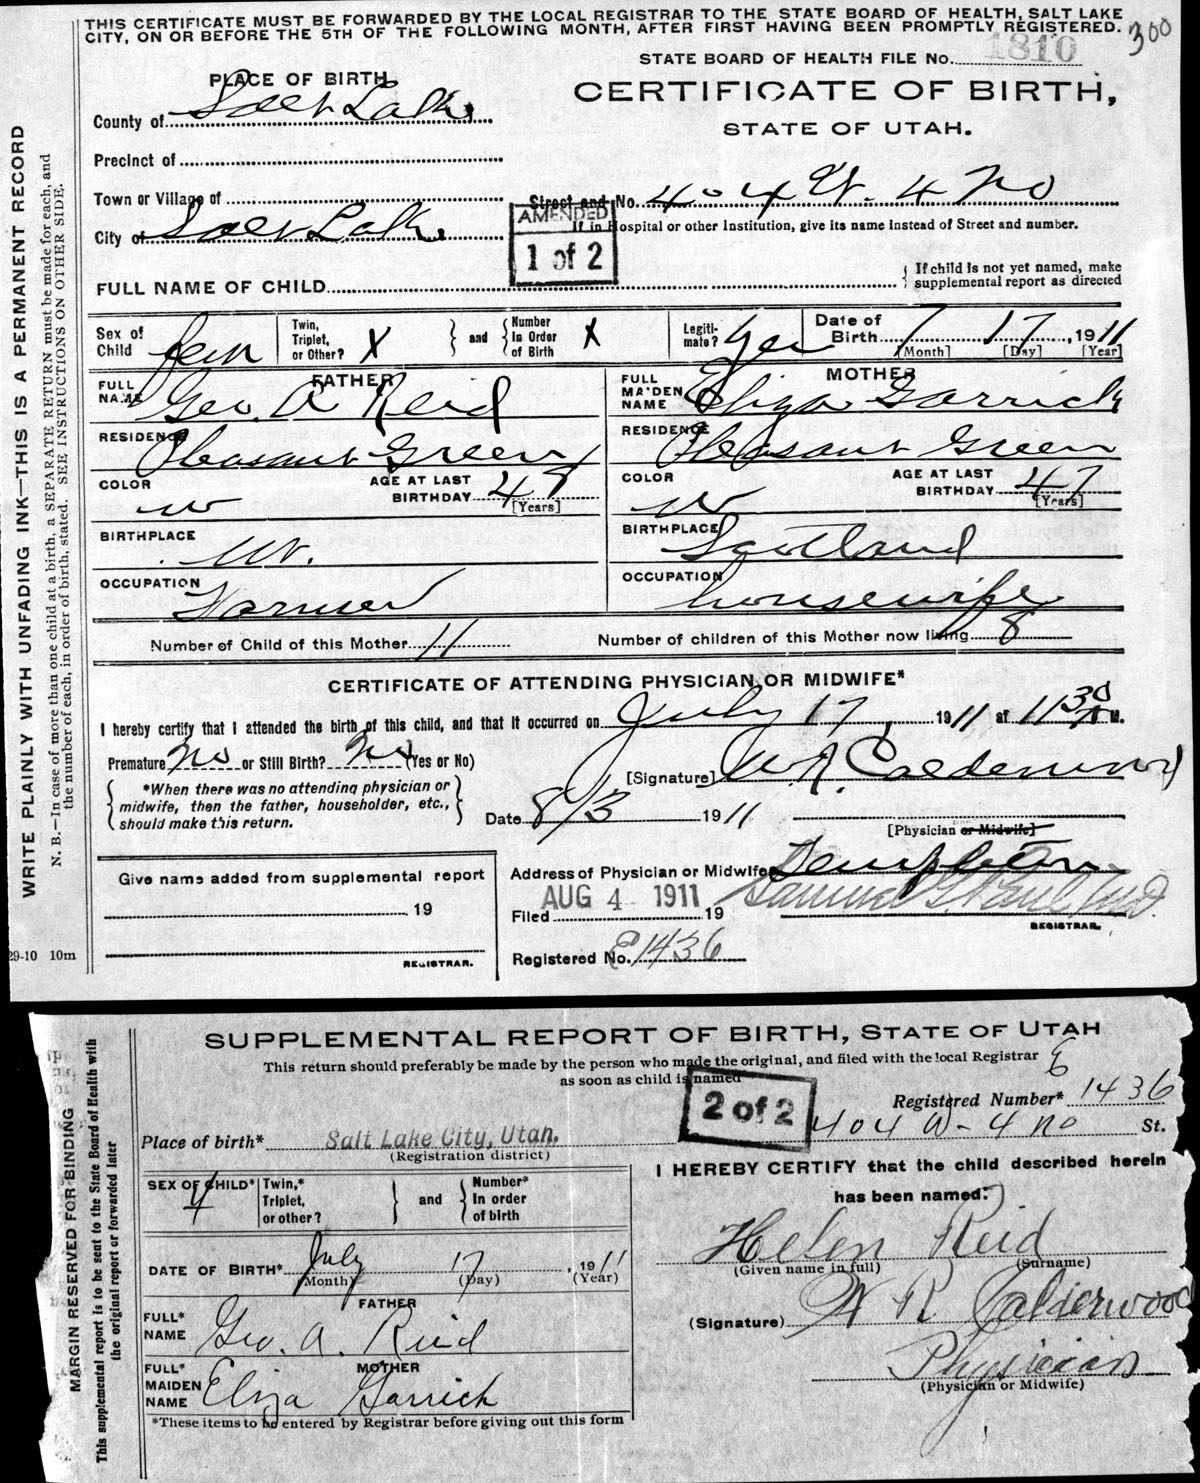 THIS CERTIFICATE MUST BE FORWARDED BY THE LOCAL REGISTRAR TO THE STATE BOARD OF HEALTH, SALT LAKE
CITY, ON OR BEFORE THE 5TH OF THE FOLLOWING MONTH, AFTER FIRST HAVING BEEN PROMPTLY REGISTERED.
300
STATE BOARD OF HEALTH FILE No. 1810
PLACE OF BIRTH
CERTIFICATE OF BIRTH,
STATE OF UTAH.
County of Salt Lake
Precinct of
Town or Village of
Street and No. 404 W. 4 No
City of Salt Lake
If in Hospital or other Institution, give its name instead of Street and number.
AMENDED
1 of 2
FULL NAME OF CHILD
If child is not yet named, make
supplemental report as directed
Sex of Child fem
Twin, Triplet, or Other? X
and
Number In Order of Birth X
Legitimate? Yes
Date of Birth 7 17, 1911
[Month] [Day] [Year]
FATHER
FULL NAME Geo. A Reid
RESIDENCE Pleasant Green
COLOR W
AGE AT LAST BIRTHDAY 48 [Years]
BIRTHPLACE Ut.
OCCUPATION Farmer
MOTHER
FULL MAIDEN NAME Eliza Garrick
RESIDENCE Pleasant Green
COLOR W
AGE AT LAST BIRTHDAY 47 [Years]
BIRTHPLACE Scotland
OCCUPATION housewife
Number of Child of this Mother 11
Number of children of this Mother now living 8
CERTIFICATE OF ATTENDING PHYSICIAN OR MIDWIFE*
I hereby certify that I attended the birth of this child, and that it occurred on July 17, 1911 at 11 30 A M.
Premature No or Still Birth? No (Yes or No)
[Signature] W R Calderwood
*When there was no attending physician or
midwife, then the father, householder, etc.,
should make this return.
Date 8/3 1911
[Physician or Midwife]
Address of Physician or Midwife Templeton
Give name added from supplemental report
19
REGISTRAR.
Filed AUG 4 1911 19
Samuel G. Paul M.D.
REGISTRAR.
Registered No. E1436
29-10 10m
WRITE PLAINLY WITH UNFADING INK—THIS IS A PERMANENT RECORD
N. B.—In case of more than one child at a birth, a SEPARATE RETURN must be made for each, and
the number of each, in order of birth, stated. SEE INSTRUCTIONS ON OTHER SIDE.
SUPPLEMENTAL REPORT OF BIRTH, STATE OF UTAH
This return should preferably be made by the person who made the original, and filed with the local Registrar
as soon as child is named
2 of 2
E
Registered Number* 1436
Place of birth* Salt Lake City, Utah.
404 W-4 no St.
(Registration district)
SEX OF CHILD*
Twin,* Triplet, or other?
and
Number* In order of birth
I HEREBY CERTIFY that the child described herein
has been named:
Helen Reid
(Given name in full) (Surname)
DATE OF BIRTH* July 17, 1911
(Month) (Day) (Year)
FATHER
FULL* NAME Geo. A. Reid
(Signature) W R Calderwood
MOTHER
FULL* MAIDEN NAME Eliza Garrick
Physician
(Physician or Midwife)
*These items to be entered by Registrar before giving out this form
MARGIN RESERVED FOR BINDING
This supplemental report is to be sent to the State Board of Health with
the original report or forwarded later